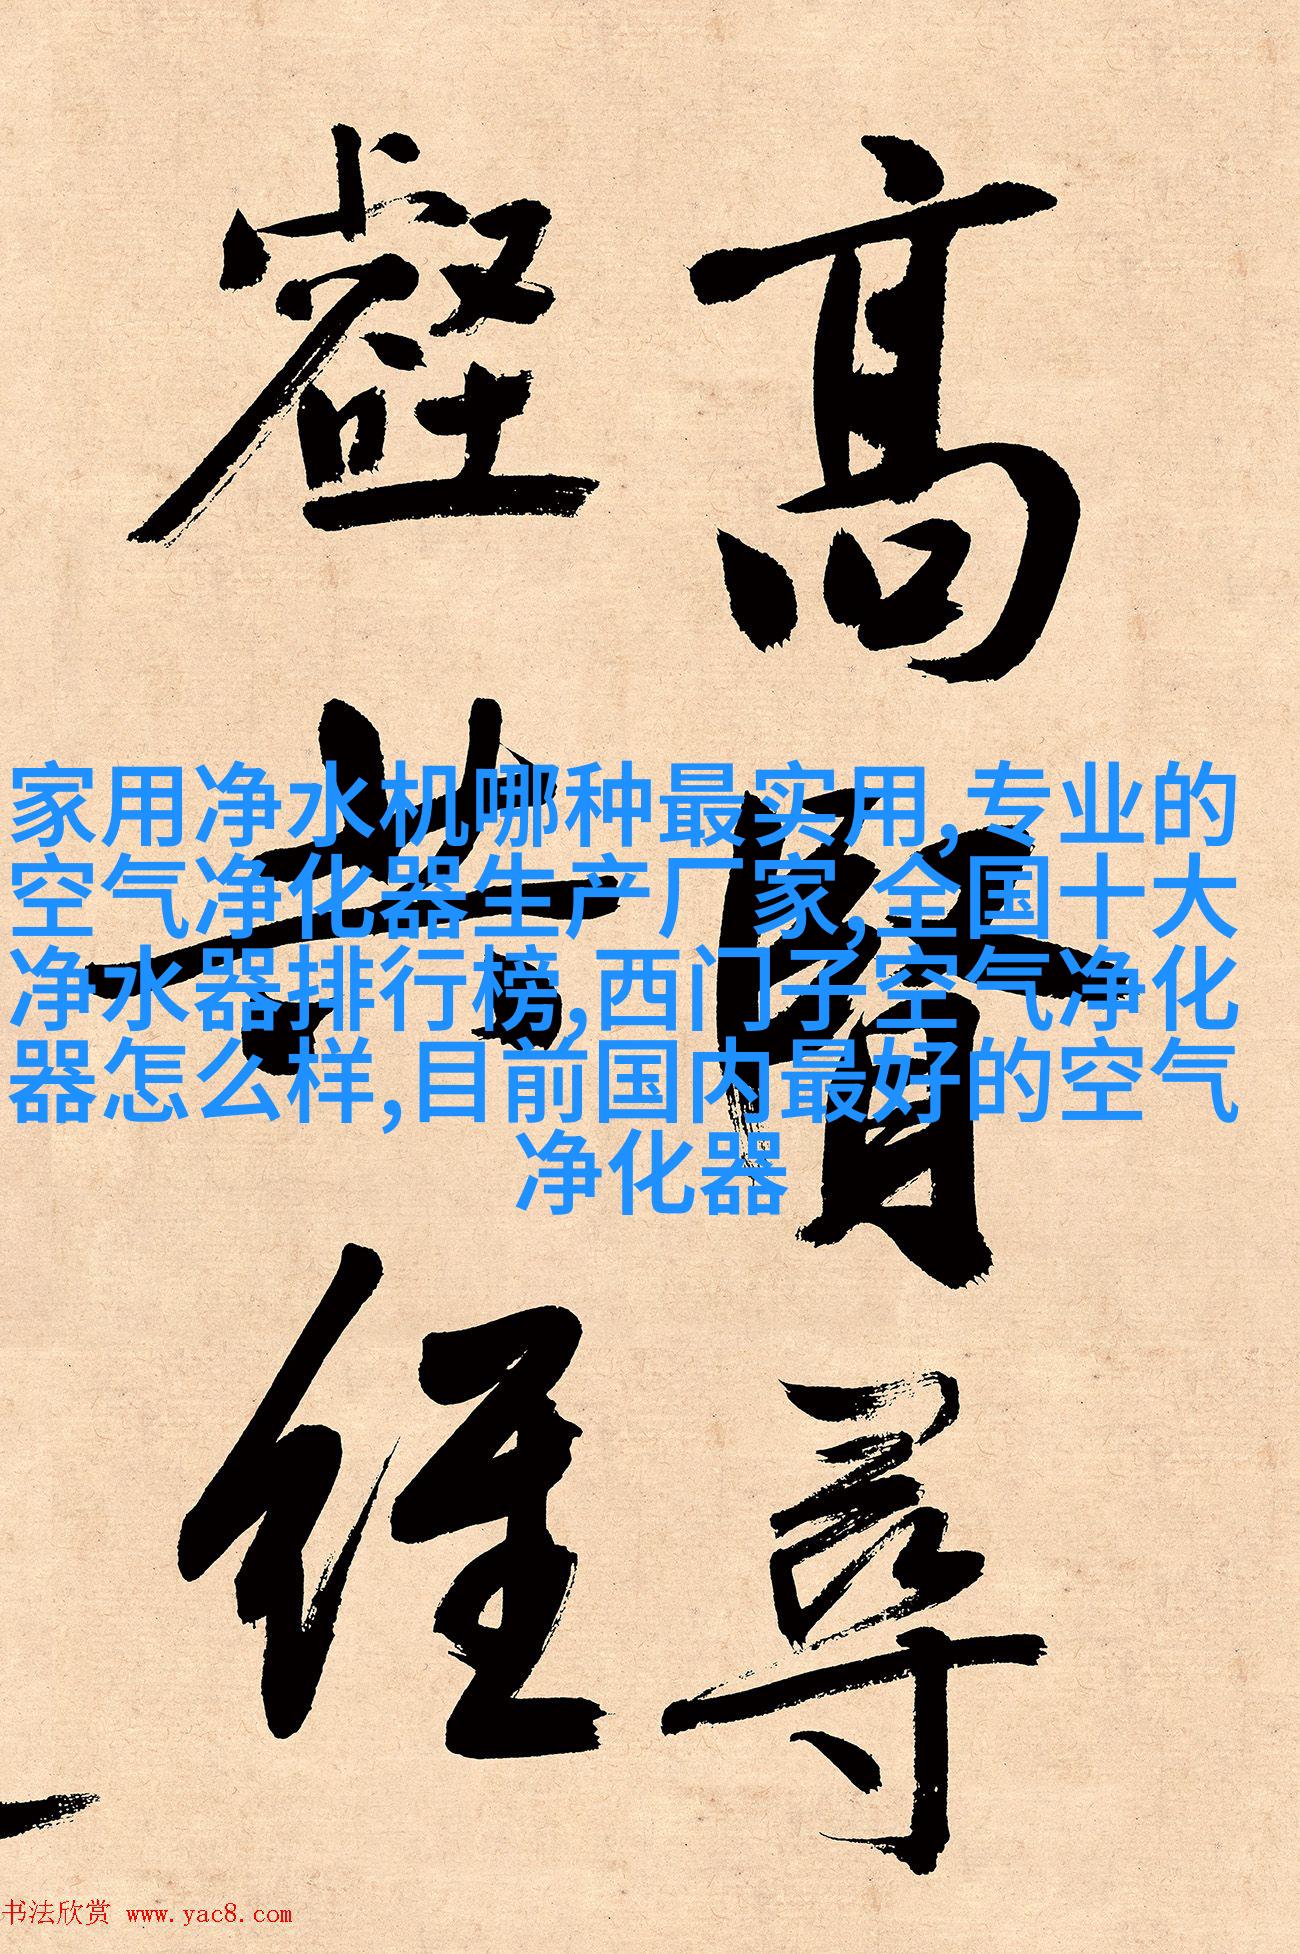 高賢尋
壑共經
家用净水机哪种最实用,专业的
空气净化器生产厂家,全国十大
净水器排行榜,西门子空气净化
器怎么样,目前国内最好的空气
净化器
书法欣赏 www.yac8.com